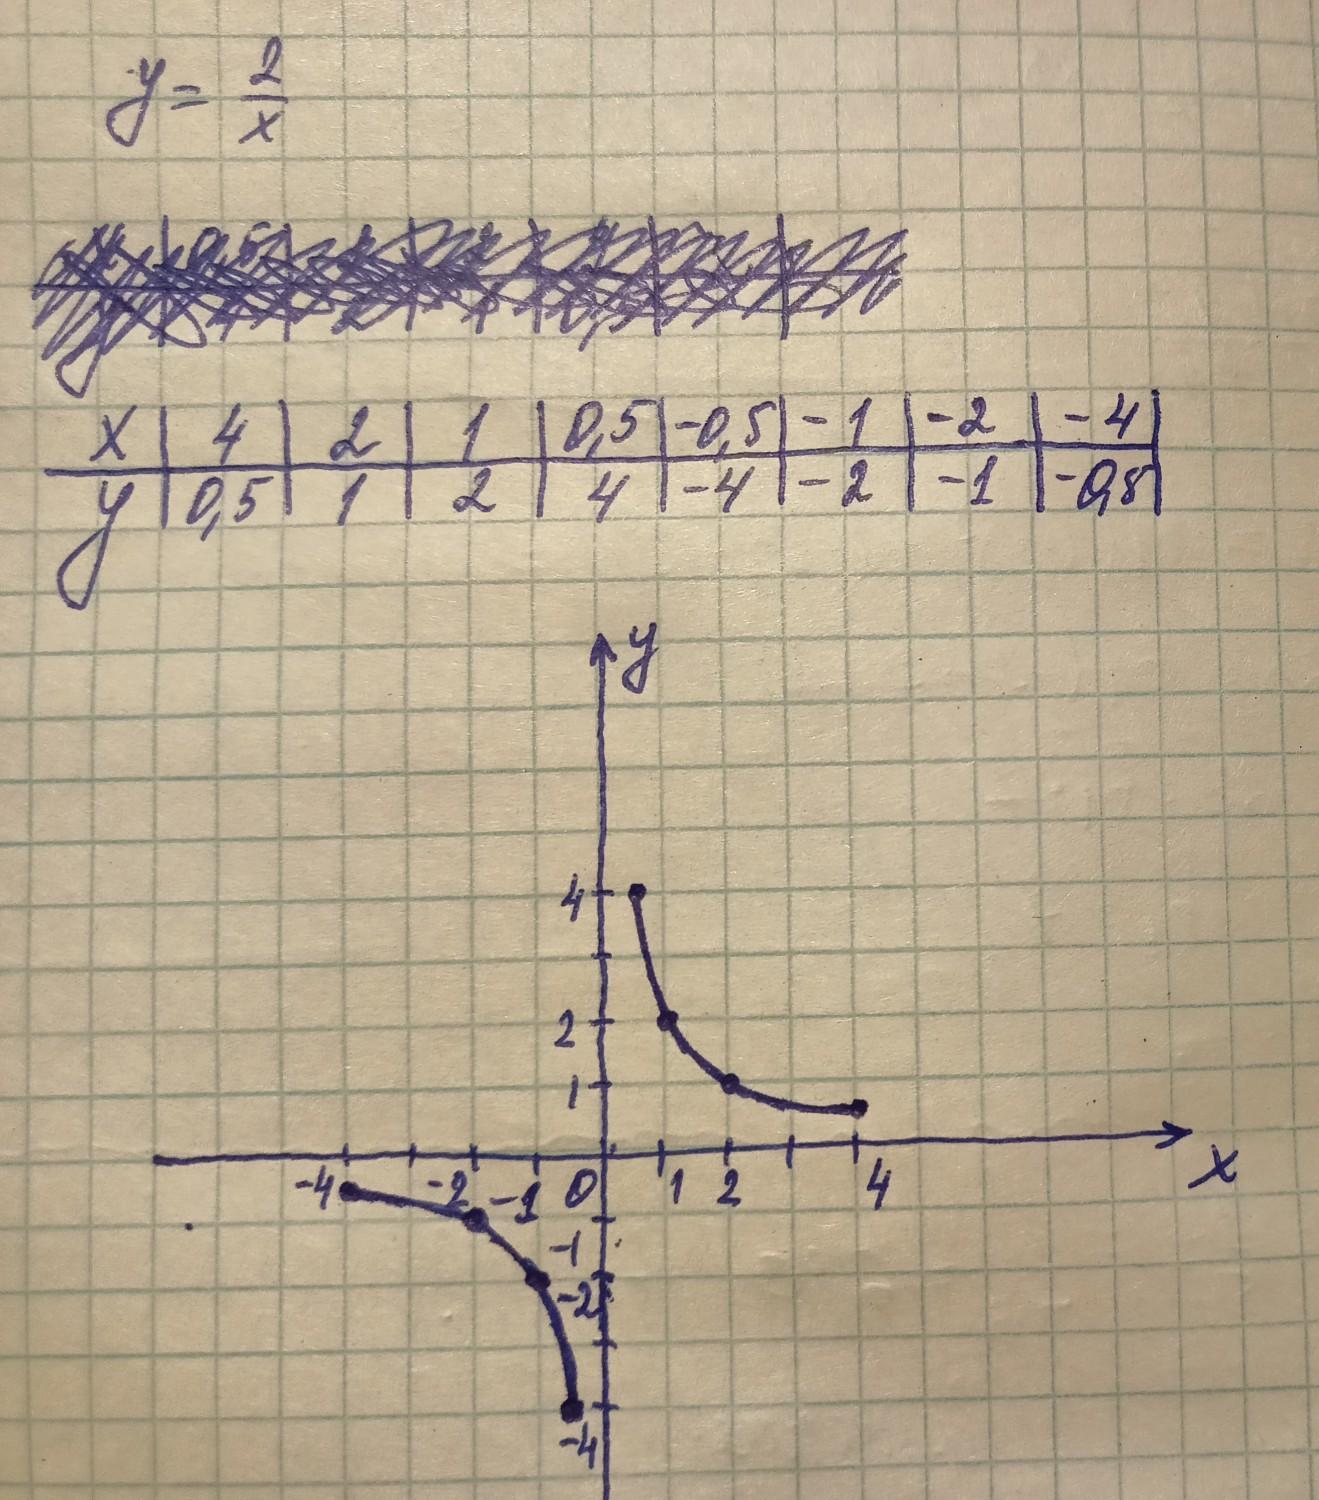 y = 2/x
x | 4 | 2 | 1 | 0,5 | -0,5 | -1 | -2 | -4 |
y | 0,5 | 1 | 2 | 4 | -4 | -2 | -1 | -0,5 |
y
4
2
1
-4 -2 -1 0 1 2 4 x
-1
-2
-4